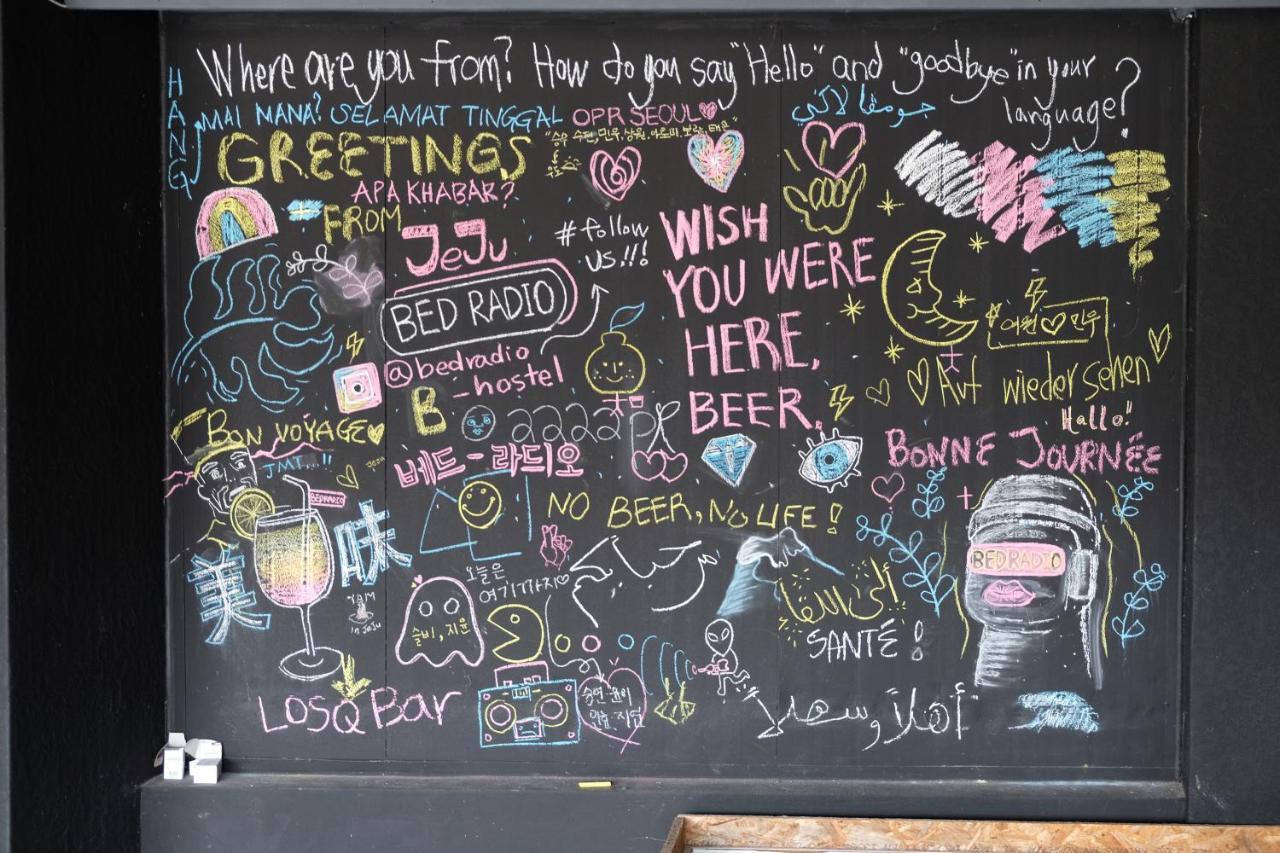 Where are you from? How do you say "Hello" and "goodbye" in your
language?
HANG
MAI MANA? SELAMAT TINGGAL
OPR SEOUL
GREETINGS
APA KHABAR?
FROM
JeJu
#follow
us!!!
BED RADIO
@bedradio
_hostel
B
WISH
YOU WERE
HERE,
BEER.
여원♡민우
Auf wiedersehen
Hallo!
BONNE JOURNÉE
BON VOYAGE
JMT...!!
BEDRADIO
베드-라디오
2222
NO BEER, NO LIFE!
美
味
YAM
in JeJu
오늘은
여기까지♡
슬비, 지윤
مرحبا
إلى اللقاء
SANTÉ!
BEDRADIO
LOSQ Bar
أهلاً وسهلاً